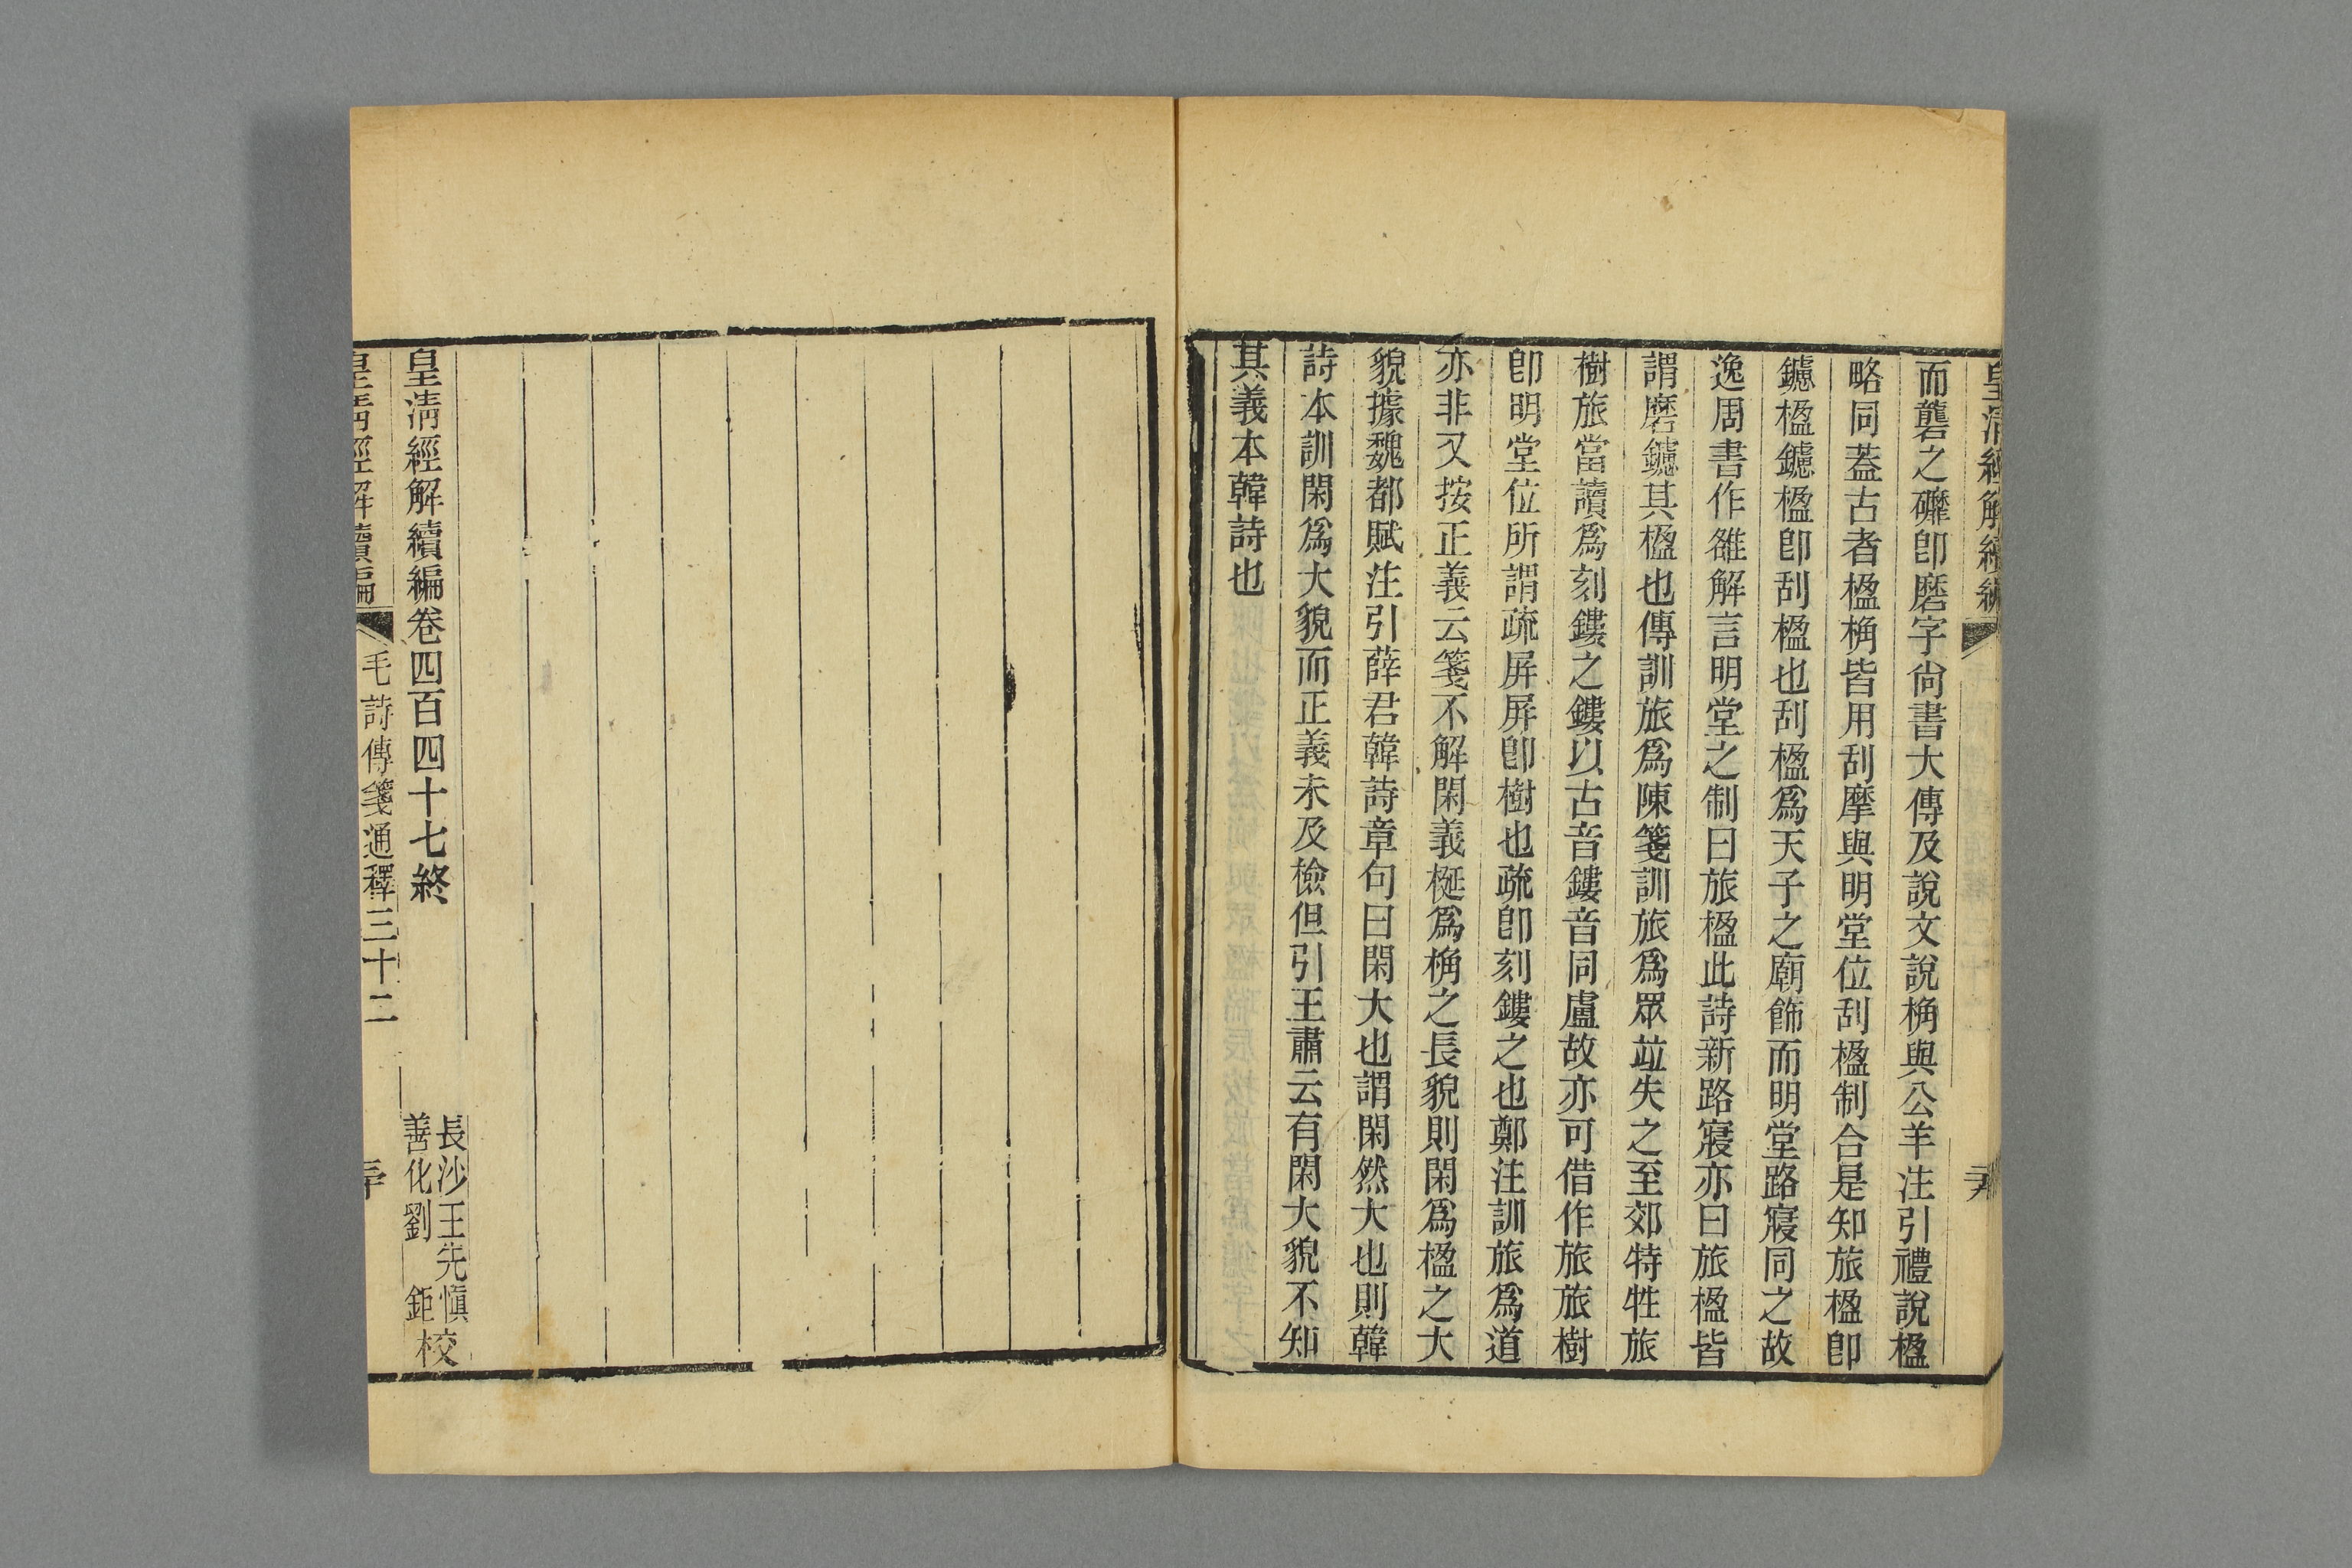 皇清經解續編
而礱之䃺卽磨字尙書大傳及說文說桷與公羊注引禮說楹
略同葢古者楹桷皆用刮摩與明堂位刮楹制合是知旅楹卽
鑢楹鑢楹卽刮楹也刮楹爲天子之廟飾而明堂路寢同之故
逸周書作雒解言明堂之制曰旅楹此詩新路寢亦曰旅楹皆
謂磨鑢其楹也傳訓旅爲陳箋訓旅爲眾竝失之至郊特牲旅
樹旅當讀爲刻鏤之鏤以古音鏤音同盧故亦可借作旅旅樹
卽明堂位所謂疏屏屏卽樹也疏卽刻鏤之也鄭注訓旅爲道
亦非又按正義云箋不解閑義梴爲桷之長貌則閑爲楹之大
貌據魏都賦注引薛君韓詩章句曰閑大也謂閑然大也則韓
詩本訓閑爲大貌而正義未及檢但引王肅云有閑大貌不知
其義本韓詩也
皇清經解續編卷四百四十七終
長沙王先愼
善化劉 鉅
校
皇清經解續編
毛詩傳箋通釋三十二